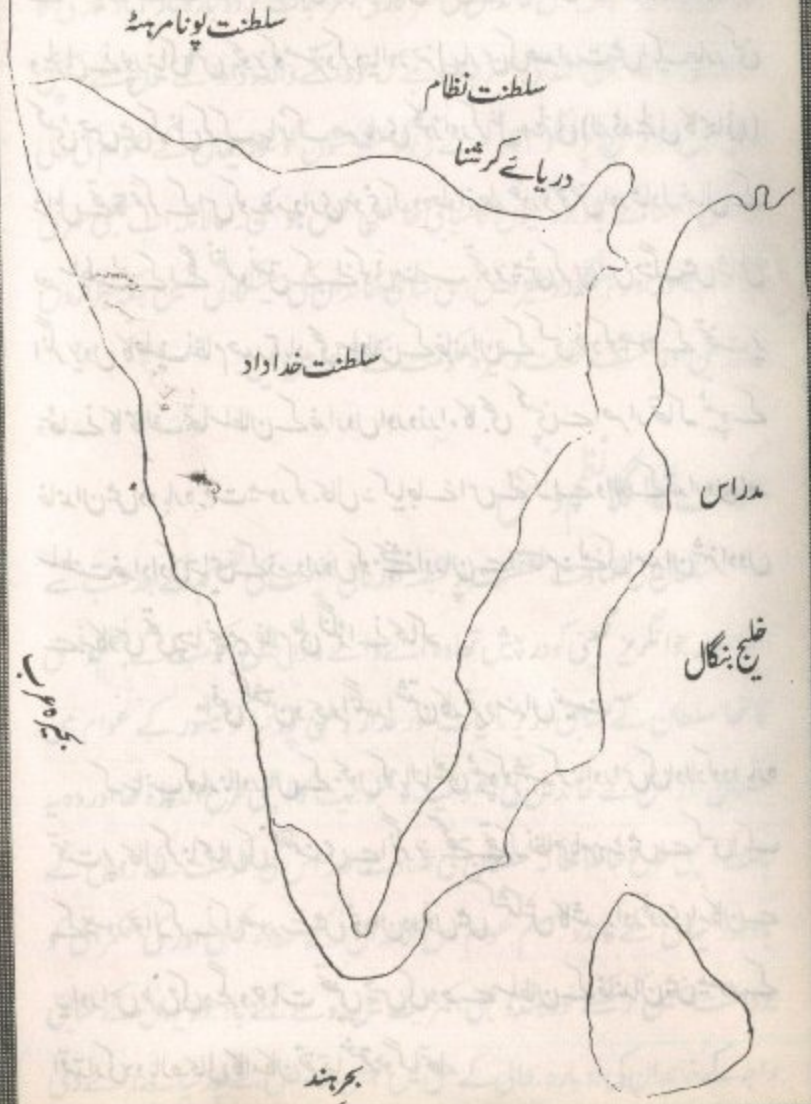 سلطنت پونا مرہٹہ
سلطنت نظام
دریائے کرشنا
سلطنت خداداد
مدراس
خلیج بنگال
بحر ہند